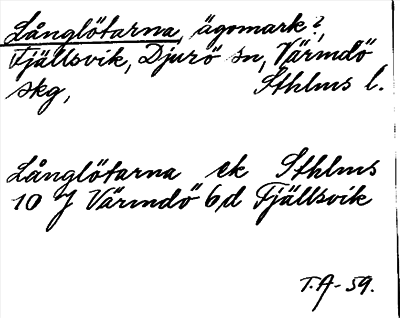 Långlötarna, ägomark?,
Fjällsvik, Djurö sn, Värmdö
skg, Sthlms l.
Långlötarna ek Sthlms
10 J Värmdö 6,d Fjällsvik
T.A-59.